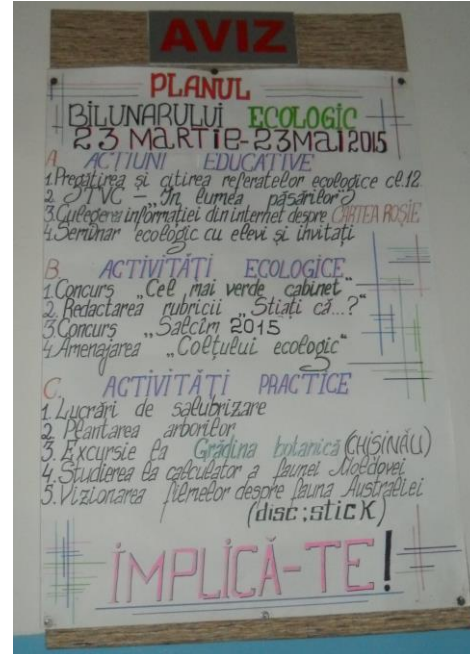 AVIZ
PLANUL
BILUNARULUI ECOLOGIC
23 MARTIE-23MAI 2015
A ACȚIUNI EDUCATIVE
1.Pregătirea și citirea referatelor ecologice cl.12
2 STVC – „În lumea păsărilor”
3.Culegerea informației din internet despre CARTEA ROȘIE
4.Seminar ecologic cu elevi și invitați
B. ACTIVITĂȚI ECOLOGICE
1.Concurs „Cel mai verde cabinet”
2. Redactarea rubricii „Știați că...?”
3.Concurs „Salcîm 2015
4.Amenajarea „Colțului ecologic”
C. ACTIVITĂȚI PRACTICE
1. Lucrări de salubrizare
2 Plantarea arborilor
3. Excursie la Grădina botanică (CHIȘINĂU)
4. Studierea la calculator a faunei Moldovei
5. Vizionarea filmelor despre fauna Australiei
(disc;stick)
IMPLICĂ-TE!